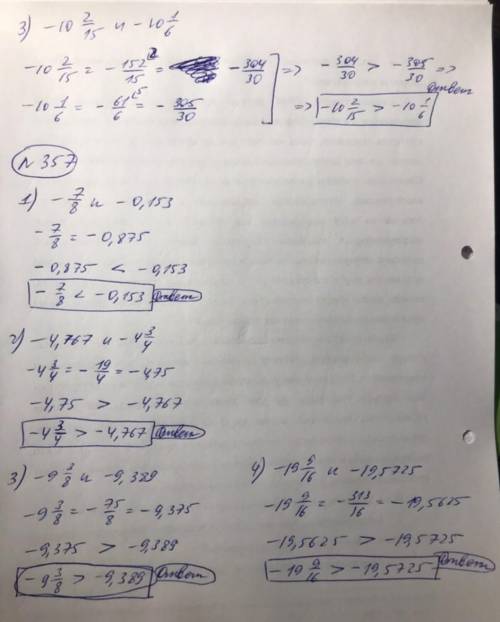 3) -10 2/15 и -10 1/6
-10 2/15 = - 152/15 ² = - 304/30 ] => - 304/30 > - 305/30 =>
-10 1/6 = - 61/6 ⁵ = - 305/30 => -10 2/15 > -10 1/6 Ответ
№357
1) - 7/8 и -0,153
- 7/8 = -0,875
-0,875 < -0,153
- 7/8 < -0,153 Ответ
2) -4,767 и -4 3/4
-4 3/4 = - 19/4 = -4,75
-4,75 > -4,767
-4 3/4 > -4,767 Ответ
3) -9 3/8 и -9,389
-9 3/8 = - 75/8 = -9,375
-9,375 > -9,389
-9 3/8 > -9,389 Ответ
4) -19 9/16 и -19,5725
-19 9/16 = - 313/16 = -19,5625
-19,5625 > -19,5725
-19 9/16 > -19,5725 Ответ